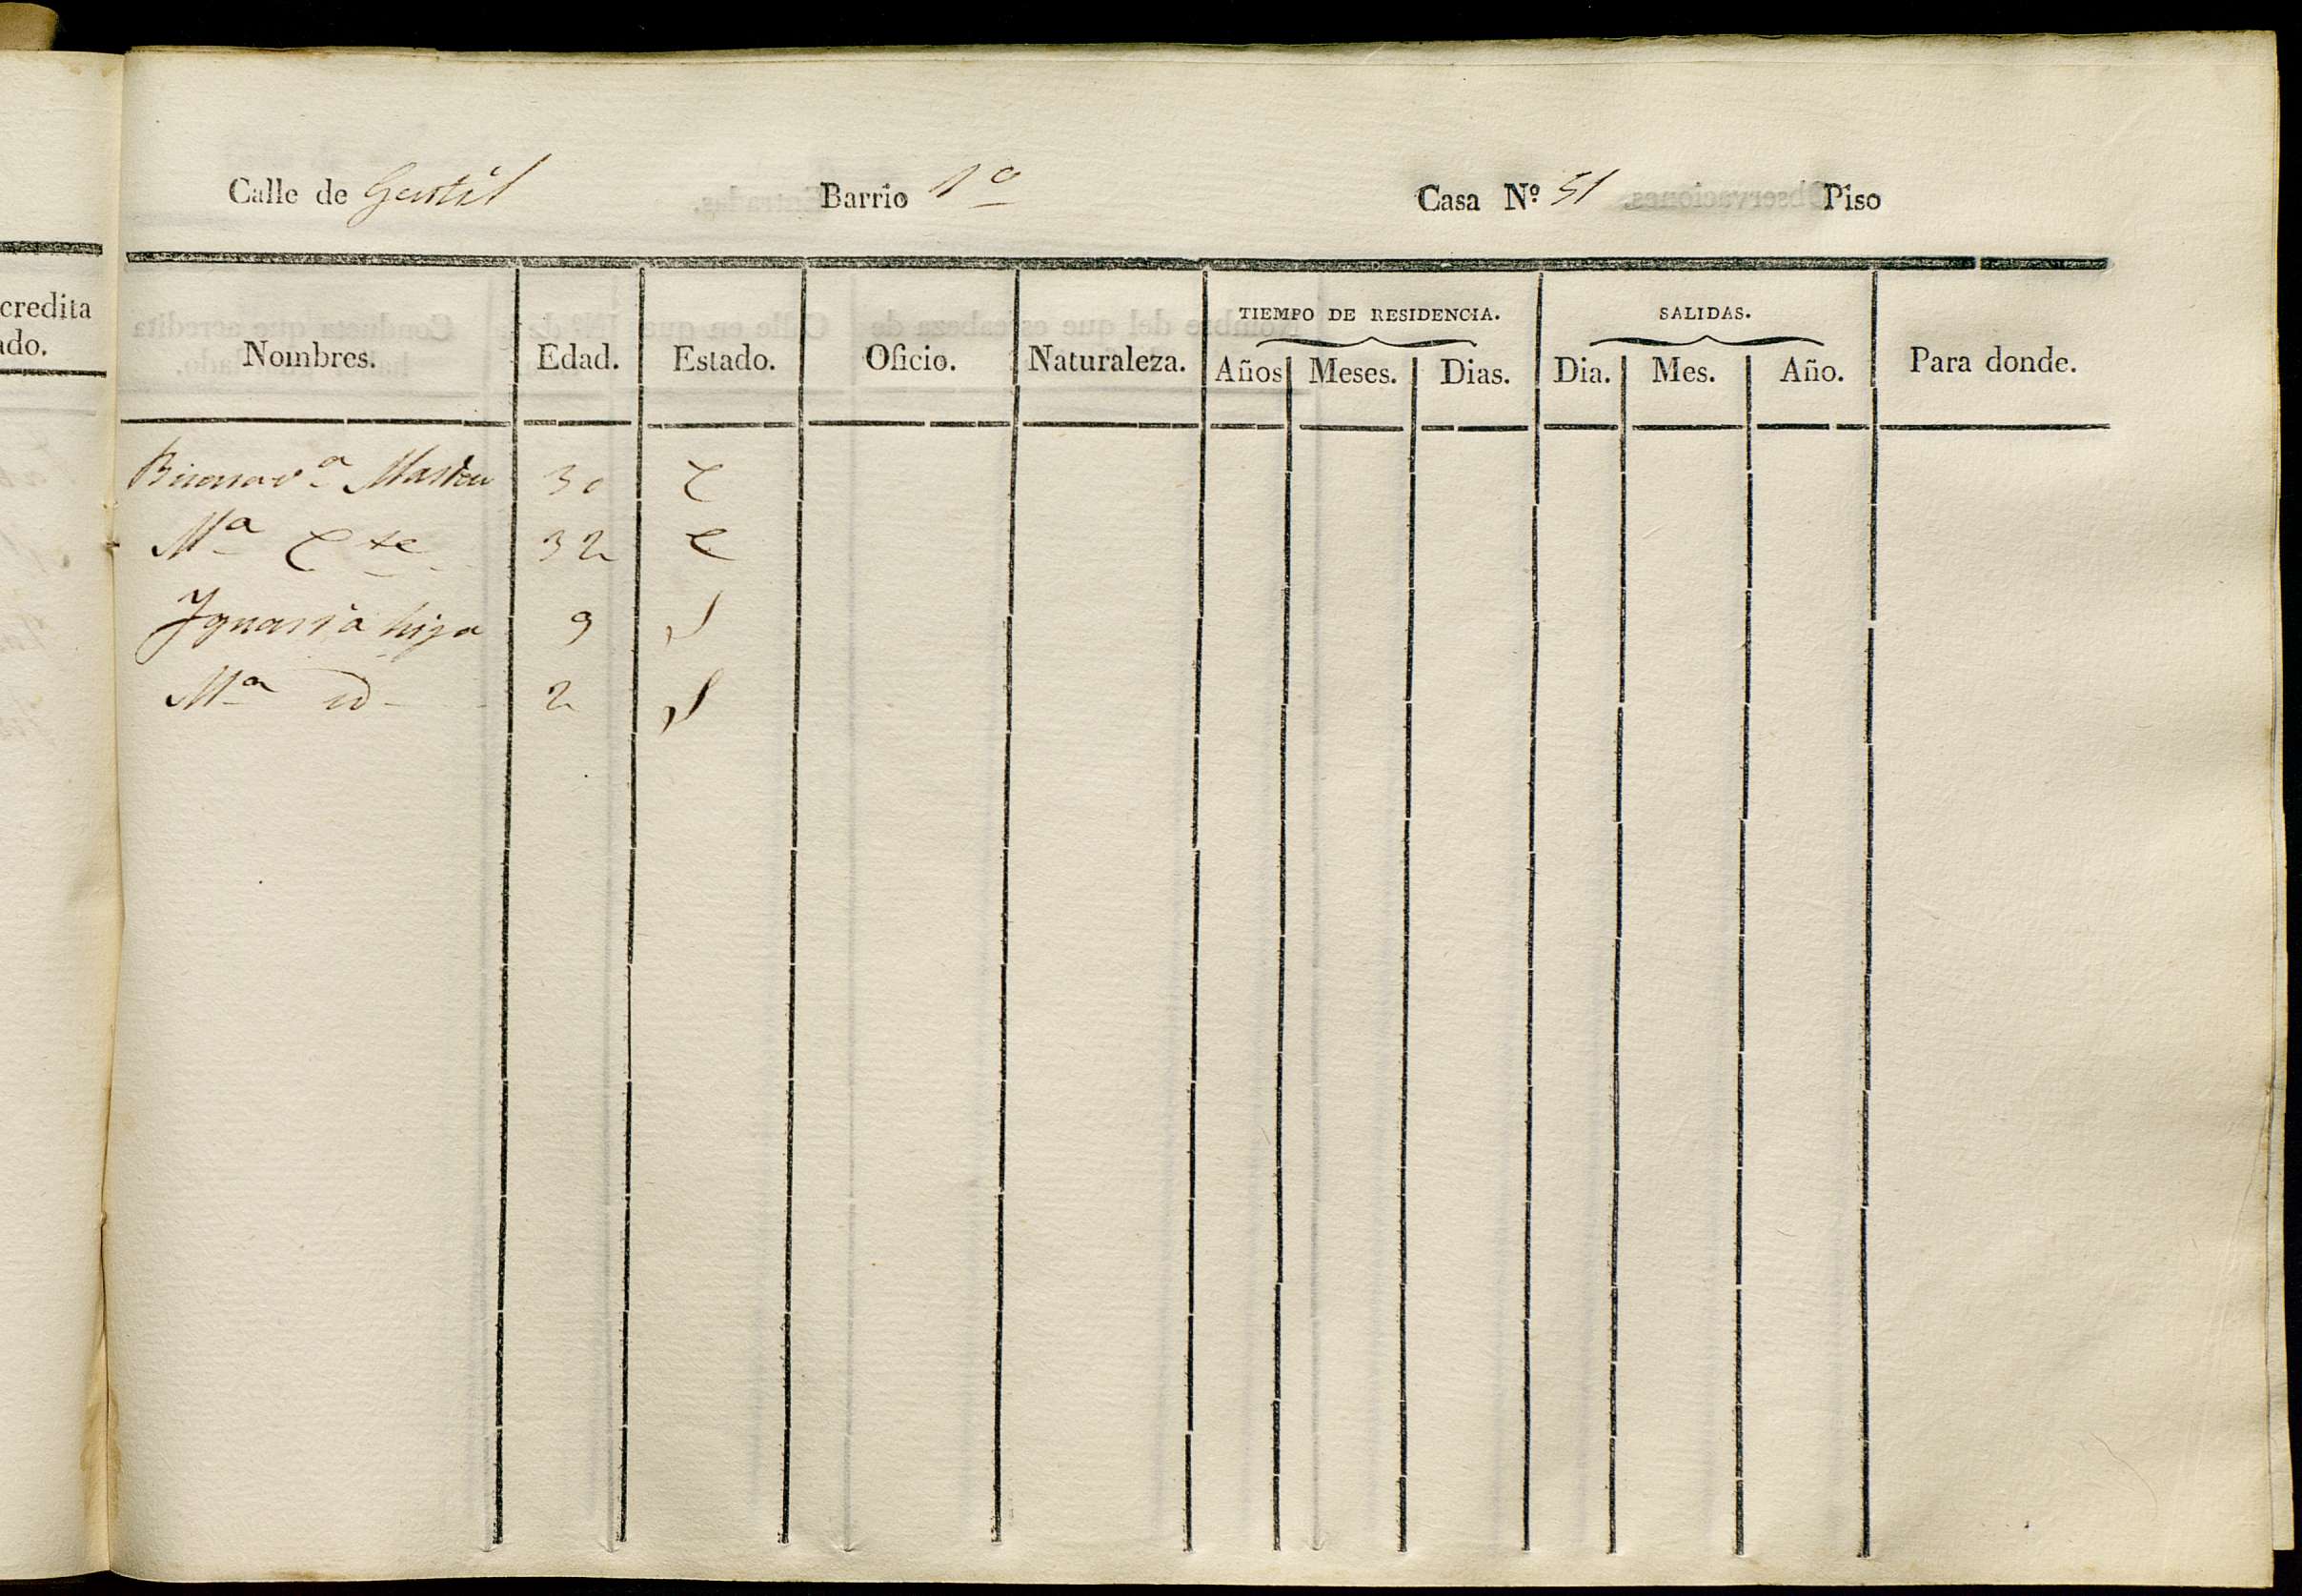 credita
ado.
Calle de Gentil Barrio 1º Casa Nº 51 Piso
Nombres. Edad. Estado. Oficio. Naturaleza. TIEMPO DE RESIDENCIA. SALIDAS. Para donde.
Años Meses. Dias. Dia. Mes. Año.
Buenavª 30 C
Mª Cte 32 C
Ignasia hija 9 S
Mª id 2 S